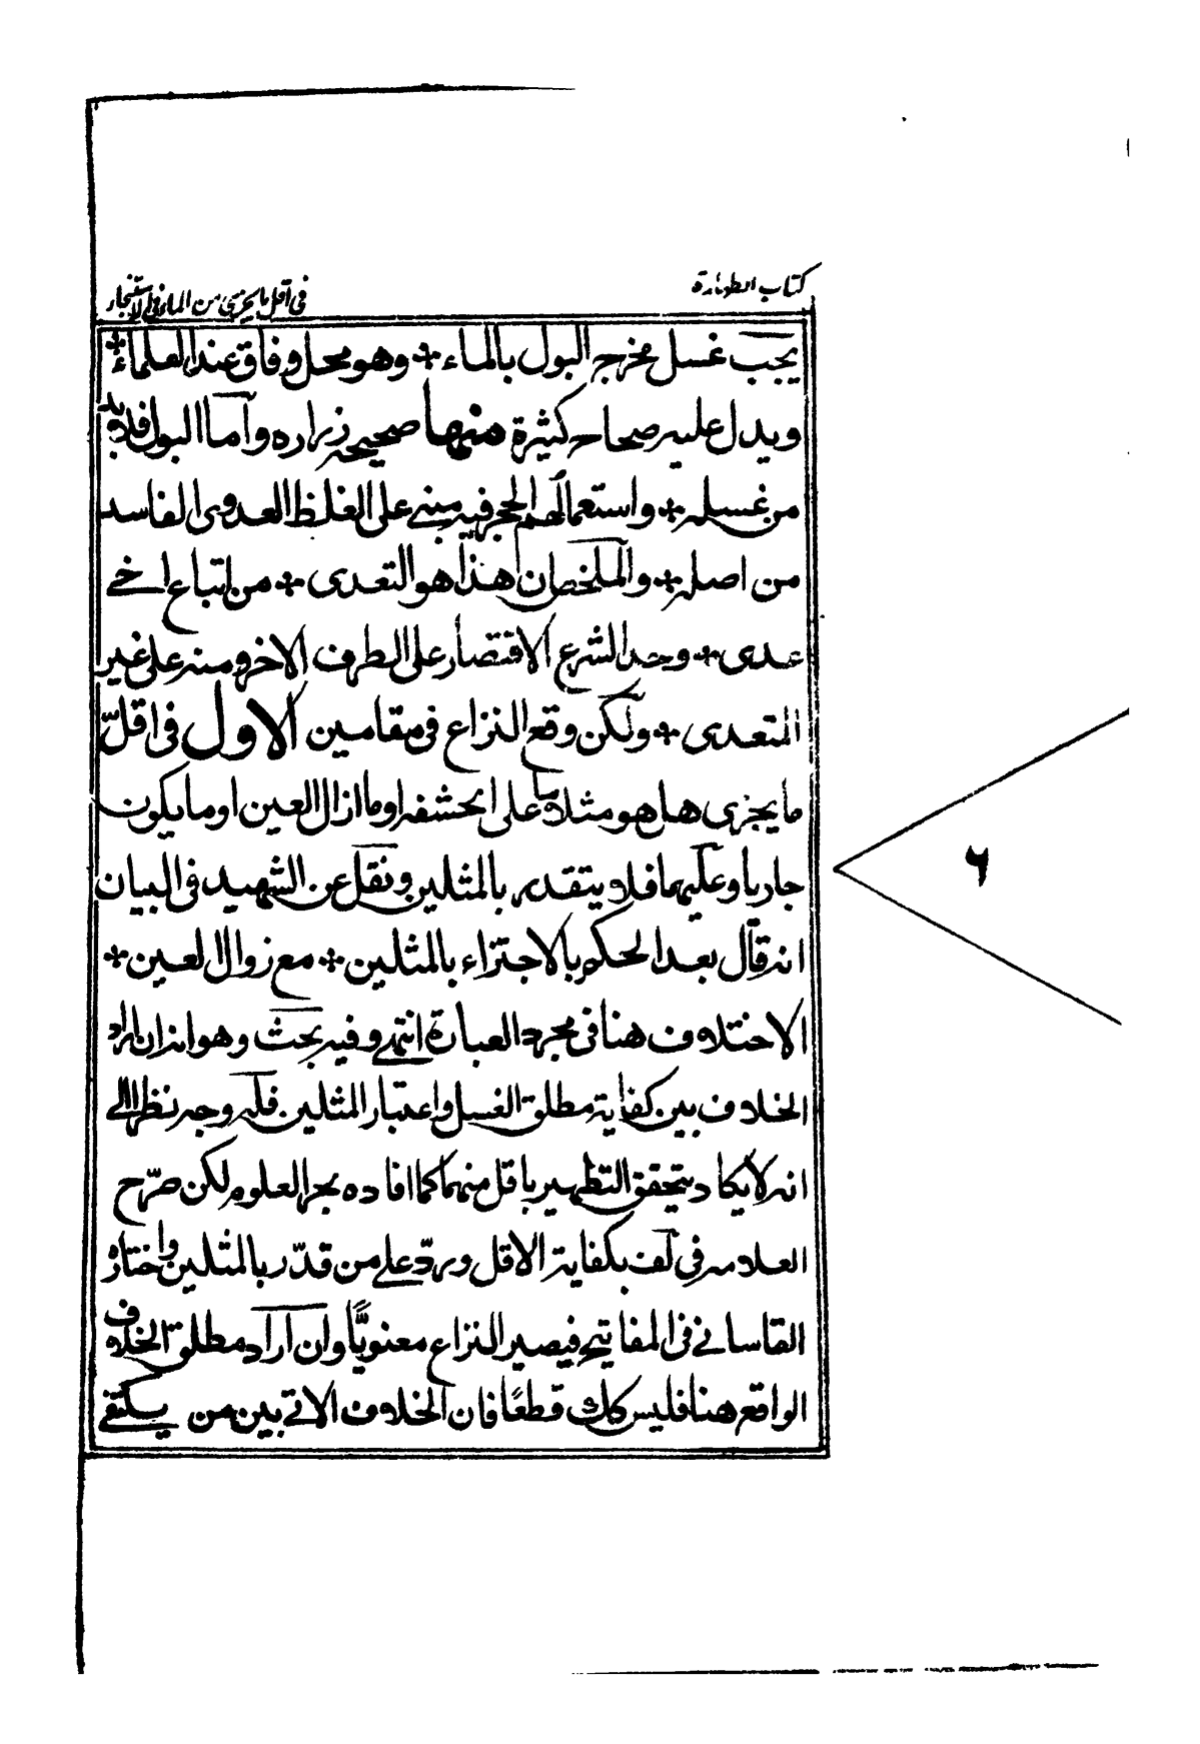 كتاب الطهارة
في اقل ما يجزي من الماء في الاستنجاء
يجب غسل مخرج البول بالماء ٭ وهو محل وفاق عند العلماء ٭
ويدل عليه صحاح كثيرة منها صحيحه زراره واما البول فلا بد
من غسله ٭ واستعمالهم الحجر فيه مبني على الغلظ العدوى الفاسد
من اصله ٭ والملخص ان هذا هو التعدى ٭ من اتباع اخي
عدى ٭ وحد الشرع الاقتصار على الطرف الاخر ومنه على غير
المتعدى ٭ ولكن وقع النزاع في مقامين الاول في اقلّ
ما يجزى هل هو مثلا ما على الحشفه او ما ازال العين او ما يكون
جاريا وعليهما فلا يتقدر بالمثلين ونقل عن الشهيد في البيان
انه قال بعد الحكم بالاجتزاء بالمثلين ٭ مع زوال العين ٭
الاختلاف هنا في مجرد العبارة انتهى وفيه بحث وهو انه ان اراد
الخلاف بين كفاية مطلق الغسل واعتبار المثلين فله وجه نظرا الى
انه لا يكاد يتحقق التطهير باقل منهما كما افاده بحر العلوم لكن صرّح
العلامه في لف بكفاية الاقل وردّ على من قدّر بالمثلين واختاره
القاساني في المفاتيح فيصير النزاع معنويًّا وان اراد مطلق الخلاف
الواقع هنا فليس كك قطعًا فان الخلاف الاتي بين من يكتفي
٦